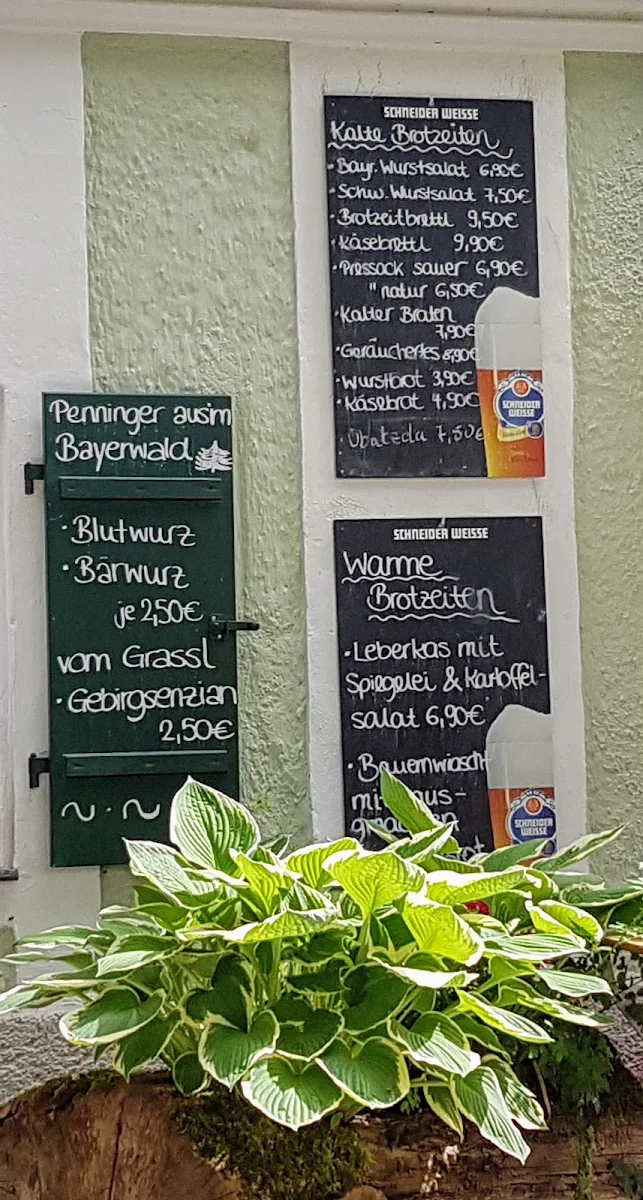 SCHNEIDER WEISSE
Kalte Brotzeiten
· Bayr. Wurstsalat 6,90€
· Schw. Wurstsalat 7,50€
· Brotzeitbrettl 9,50€
· Käsebrettl 9,90€
· Pressack sauer 6,90€
" natur 6,90€
· Kalter Braten
7,90€
· Geräuchertes 8,90€
· Wurstbrot 3,90€
· Käsebrot 4,90€
Obatzda 7,50€
SCHNEIDER
WEISSE
Penninger ausm
Bayerwald
· Blutwurz
· Bärwurz
je 2,50€
vom Grassl
· Gebirgsenzian
2,50€
SCHNEIDER WEISSE
Warme
Brotzeiten
· Leberkas mit
Spiegelei & Kartoffel-
salat 6,90€
· Bauernwürscht
SCHNEIDER
WEISSE